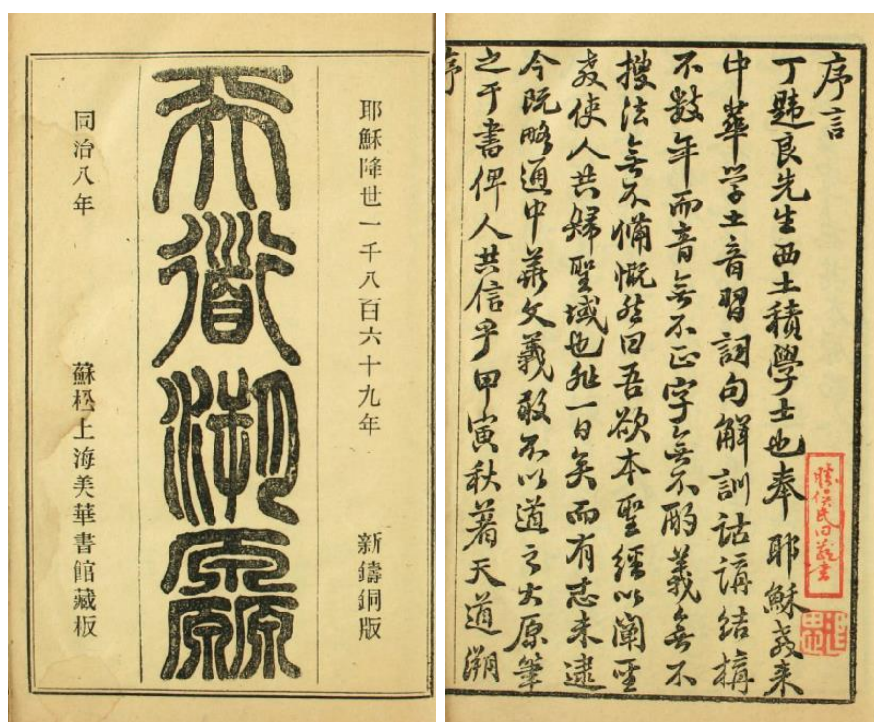 耶穌降世一千八百六十九年 新鑄銅版
天道溯厵
同治八年 蘇松上海美華書館藏板
序言
丁韙良先生西土積學士也奉 耶穌教来
中華学土音習詞句解訓詁講結構
不数年而音無不正字無不酌義無不
搜法無不備慨然曰吾欲本聖經以闡聖
教使人共歸聖域也非一日矣而有志未逮
今既略通中華文義敢不以道之大原筆
之于書俾人共信乎甲寅秋著天道溯
序